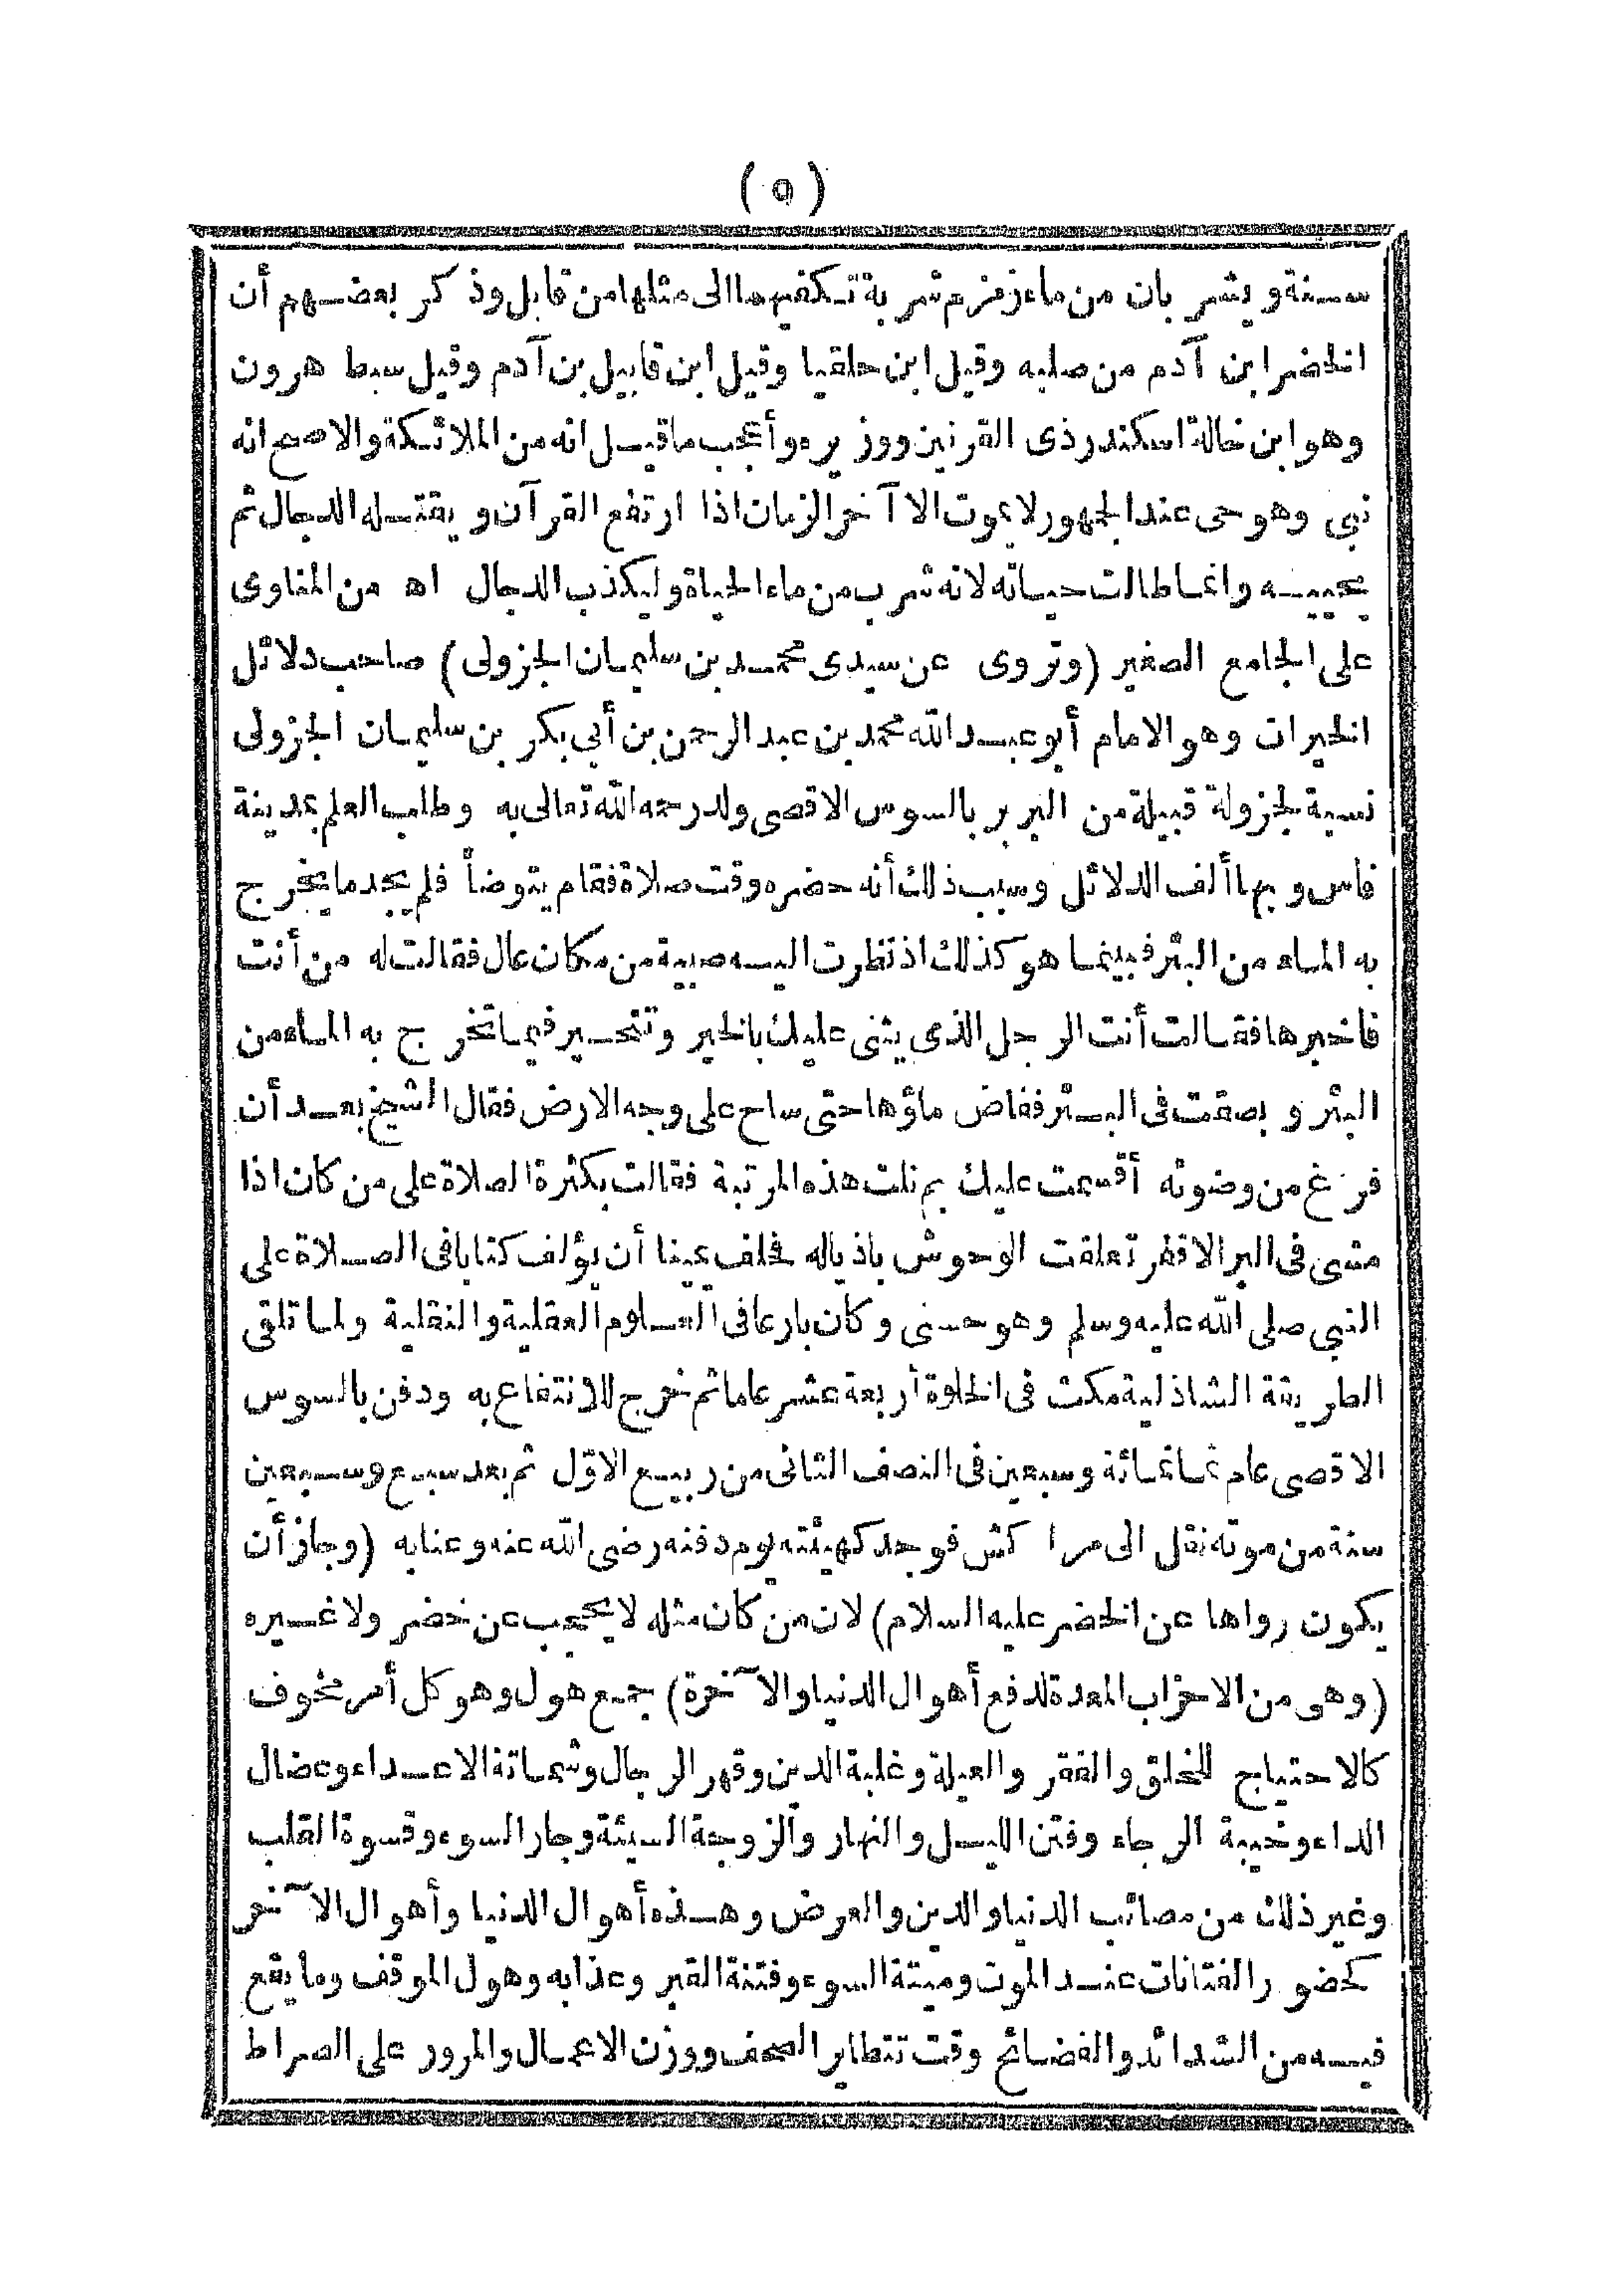 (٥)
سنة ويشربان من ماء زمزم شربة تكفيهما الى مثلها من قابل وذكر بعضهم أن
الخضر ابن آدم من صلبه وقيل ابن حلقيا وقيل ابن قابيل بن آدم وقيل سبط هرون
وهو ابن خالة اسكندر ذى القرنين ووزيره وأعجب ماقيل انه من الملائكة والاصح انه
نبى وهو حى عند الجمهور لايموت الا آخر الزمان اذا ارتفع القرآن ويقتله الدجال ثم
يحييه وانما طالت حياته لانه شرب من ماء الحياة وليكذب الدجال اه من المناوى
على الجامع الصغير (وتروى عن سيدى محمد بن سليمان الجزولى) صاحب دلائل
الخيرات وهو الامام أبو عبد الله محمد بن عبد الرحمن بن أبى بكر بن سليمان الجزولى
نسبة لجزولة قبيلة من البربر بالسوس الاقصى ولد رحمه الله تعالى به وطلب العلم بمدينة
فاس وبها ألف الدلائل وسبب ذلك أنه حضره وقت صلاة فقام يتوضأ فلم يجد ما يخرج
به الماء من البئر فبينما هو كذلك اذ نظرت اليه صبية من مكان عال فقالت له من أنت
فاخبرها فقالت أنت الرجل الذى يثنى عليك بالخير وتتحير فيما تخرج به الماء من
البئر وبصقت فى البئر ففاض ماؤها حتى ساح على وجه الارض فقال الشيخ بعد أن
فرغ من وضوئه أقسمت عليك بم نلت هذه المرتبة فقالت بكثرة الصلاة على من كان اذا
مشى فى البر الاقفر تعلقت الوحوش باذياله فحلف يمينا أن يؤلف كتابا فى الصلاة على
النبى صلى الله عليه وسلم وهو حسنى وكان بارعا فى العلوم العقلية والنقلية ولما تلقى
الطريقة الشاذلية مكث فى الخلوة أربعة عشر عاما ثم خرج للانتفاع به ودفن بالسوس
الاقصى عام ثمانمائة وسبعين فى النصف الثانى من ربيع الاوّل ثم بعد سبع وسبعين
سنة من موته نقل الى مراكش فوجد كهيئته يوم دفنه رضى الله عنه وعنابه (وجاز أن
يكون رواها عن الخضر عليه السلام) لان من كان مثله لا يحجب عن خضر ولا غيره
(وهى من الاحزاب المعدة لدفع أهوال الدنيا والآخرة) جمع هول وهو كل أمر مخوف
كالاحتياج للخلق والفقر والعيلة وغلبة الدين وقهر الرجال وشماتة الاعداء وعضال
الداء وخيبة الرجاء وفتن الليل والنهار والزوجة السيئة وجار السوء وقسوة القلب
وغير ذلك من مصائب الدنيا والدين والعرض وهذه أهوال الدنيا وأهوال الآخر
كحضور الفتانات عند الموت وميتة السوء وفتنة القبر وعذابه وهول الموقف وما يقع
فيه من الشدائد والفضائح وقت تتطاير الصحف ووزن الاعمال والمرور على الصراط